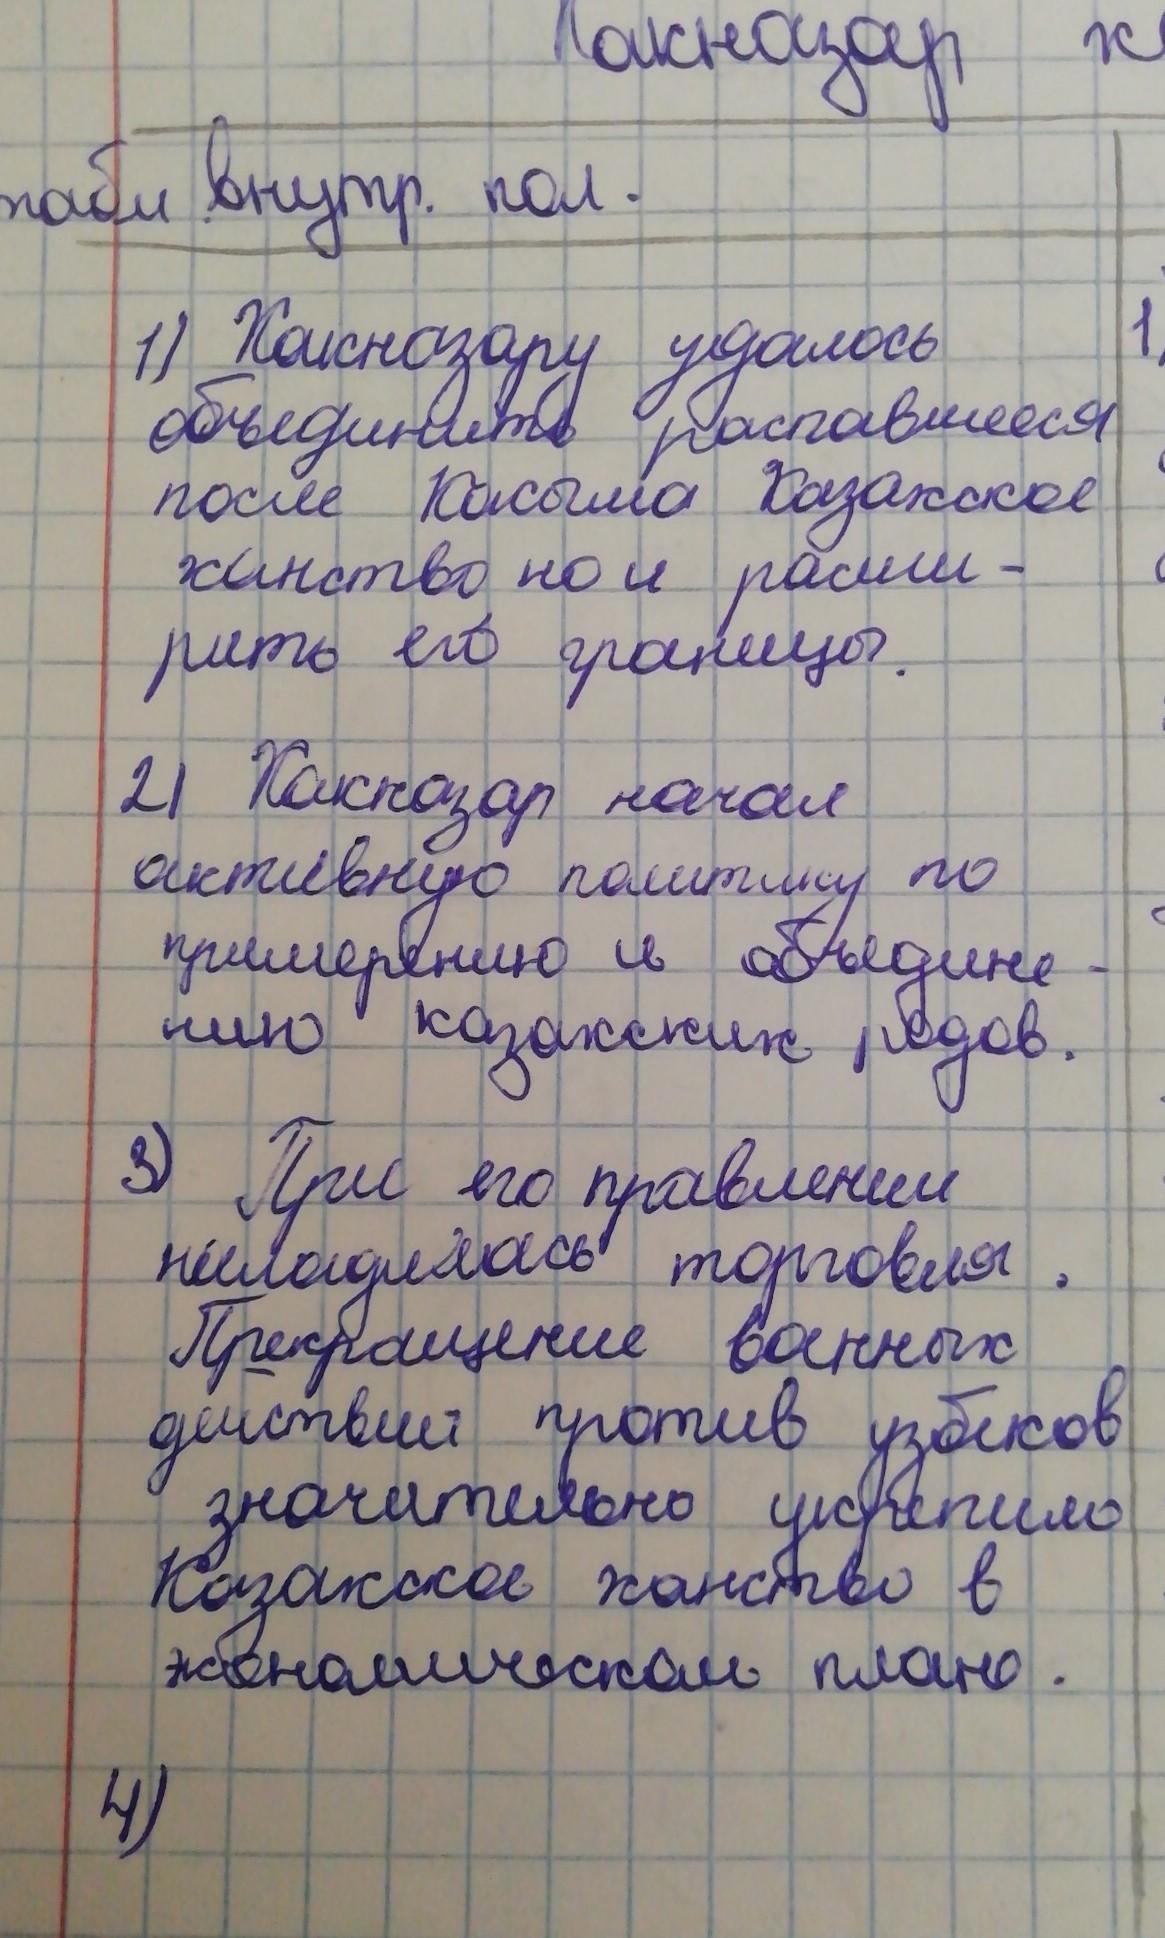 Хакназар
внутр. пол.
1) Хакназару удалось
объединить распавшееся
после Касыма Казахское
ханство но и расши-
рить его границы.
2) Хакназар начал
активную политику по
примерению и объедине-
нию казахских родов.
3) При его правлении
наладилась торговля.
Прекращение военных
действий против узбеков
значительно укрепило
Казахское ханство в
экономическом плане.
4)
1)